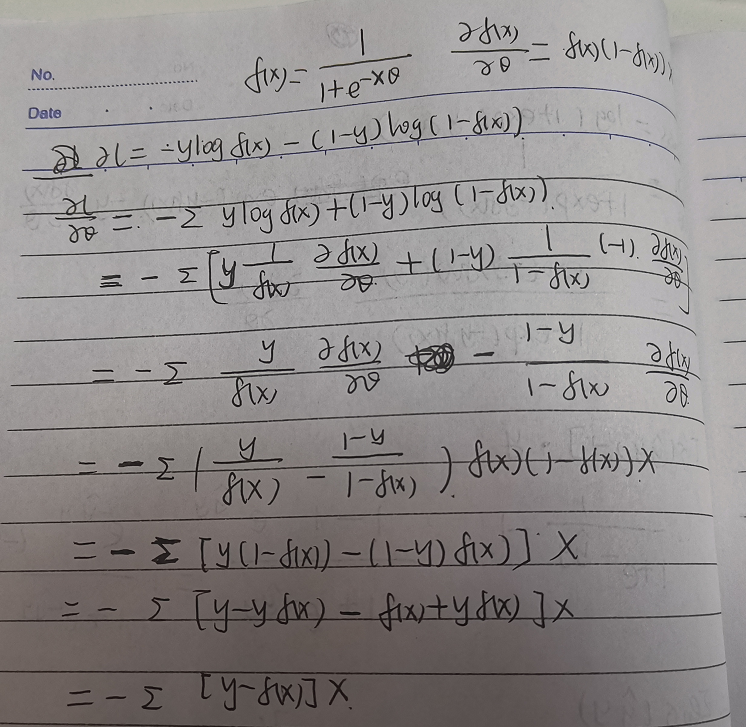 f(x) = 1/(1+e^-xθ) ∂f(x)/∂θ = f(x)(1-f(x)),
No.
Date
∂l = -ylog f(x) - (1-y) log(1-f(x))
∂l/∂θ = -Σ ylog f(x) + (1-y) log(1-f(x))
= -Σ [y 1/f(x) ∂f(x)/∂θ + (1-y) 1/(1-f(x)) (-1) ∂f(x)/∂θ]
= -Σ y/f(x) ∂f(x)/∂θ - (1-y)/(1-f(x)) ∂f(x)/∂θ
= -Σ (y/f(x) - (1-y)/(1-f(x))) f(x)(1-f(x))x
= -Σ [y(1-f(x)) - (1-y) f(x)] X
= -Σ [y-yf(x) - f(x)+yf(x)] x
= -Σ [y-f(x)] x